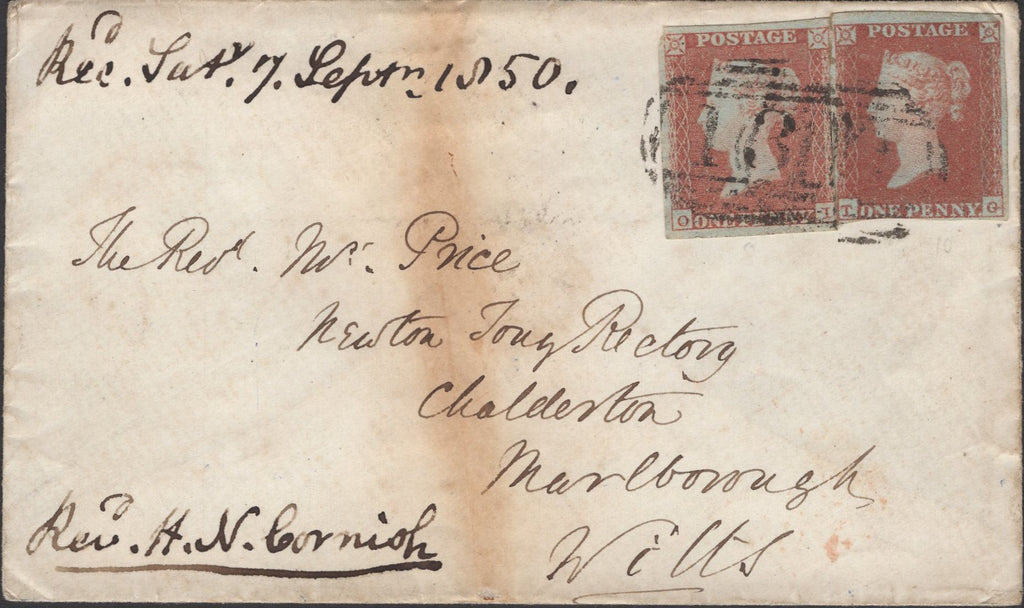 Recd. Saty. 7. Septr. 1850.
POSTAGE
O ONE PENNY I
POSTAGE
T ONE PENNY Q
The Revd. Mr. Price
Newton Tony Rectory
Chalderton
Marlborough
Wilts
Revd. H. N. Cornish